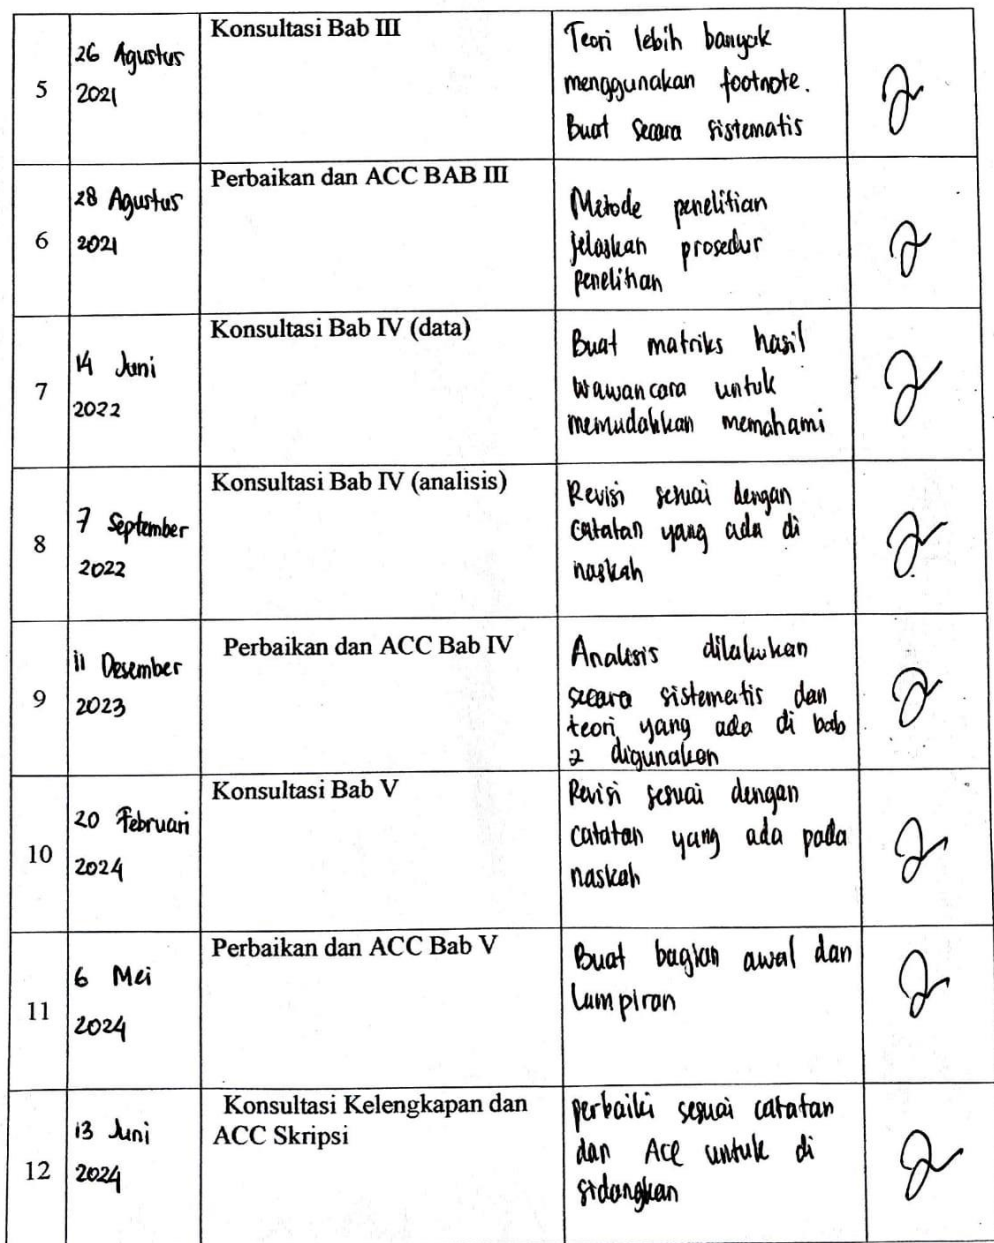 5
26 Agustus
2021
Konsultasi Bab III
Teori lebih banyak
menggunakan footnote.
Buat secara sistematis
6
28 Agustus
2021
Perbaikan dan ACC BAB III
Metode penelitian
jelaskan prosedur
penelitian
7
14 Juni
2022
Konsultasi Bab IV (data)
Buat matriks hasil
wawancara untuk
memudahkan memahami
8
7 September
2022
Konsultasi Bab IV (analisis)
Revisi sesuai dengan
catatan yang ada di
naskah
9
11 Desember
2023
Perbaikan dan ACC Bab IV
Analisis dilakukan
secara sistematis dan
teori yang ada di bab
2 digunakan
10
20 Februari
2024
Konsultasi Bab V
Revisi sesuai dengan
catatan yang ada pada
naskah
11
6 Mei
2024
Perbaikan dan ACC Bab V
Buat bagian awal dan
Lampiran
12
13 Juni
2024
Konsultasi Kelengkapan dan
ACC Skripsi
perbaiki sesuai catatan
dan Acc untuk di
sidangkan